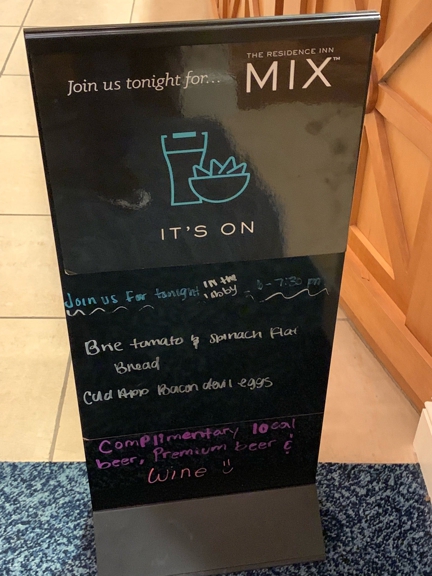 THE RESIDENCE INN
Join us tonight for... MIX™
IT'S ON
Join us For tonight in the lobby - 7:30 pm
Brie tomato & Spinach Flat
Bread
Cold App Bacon devil eggs
Complimentary local
beer, Premium beer &
Wine